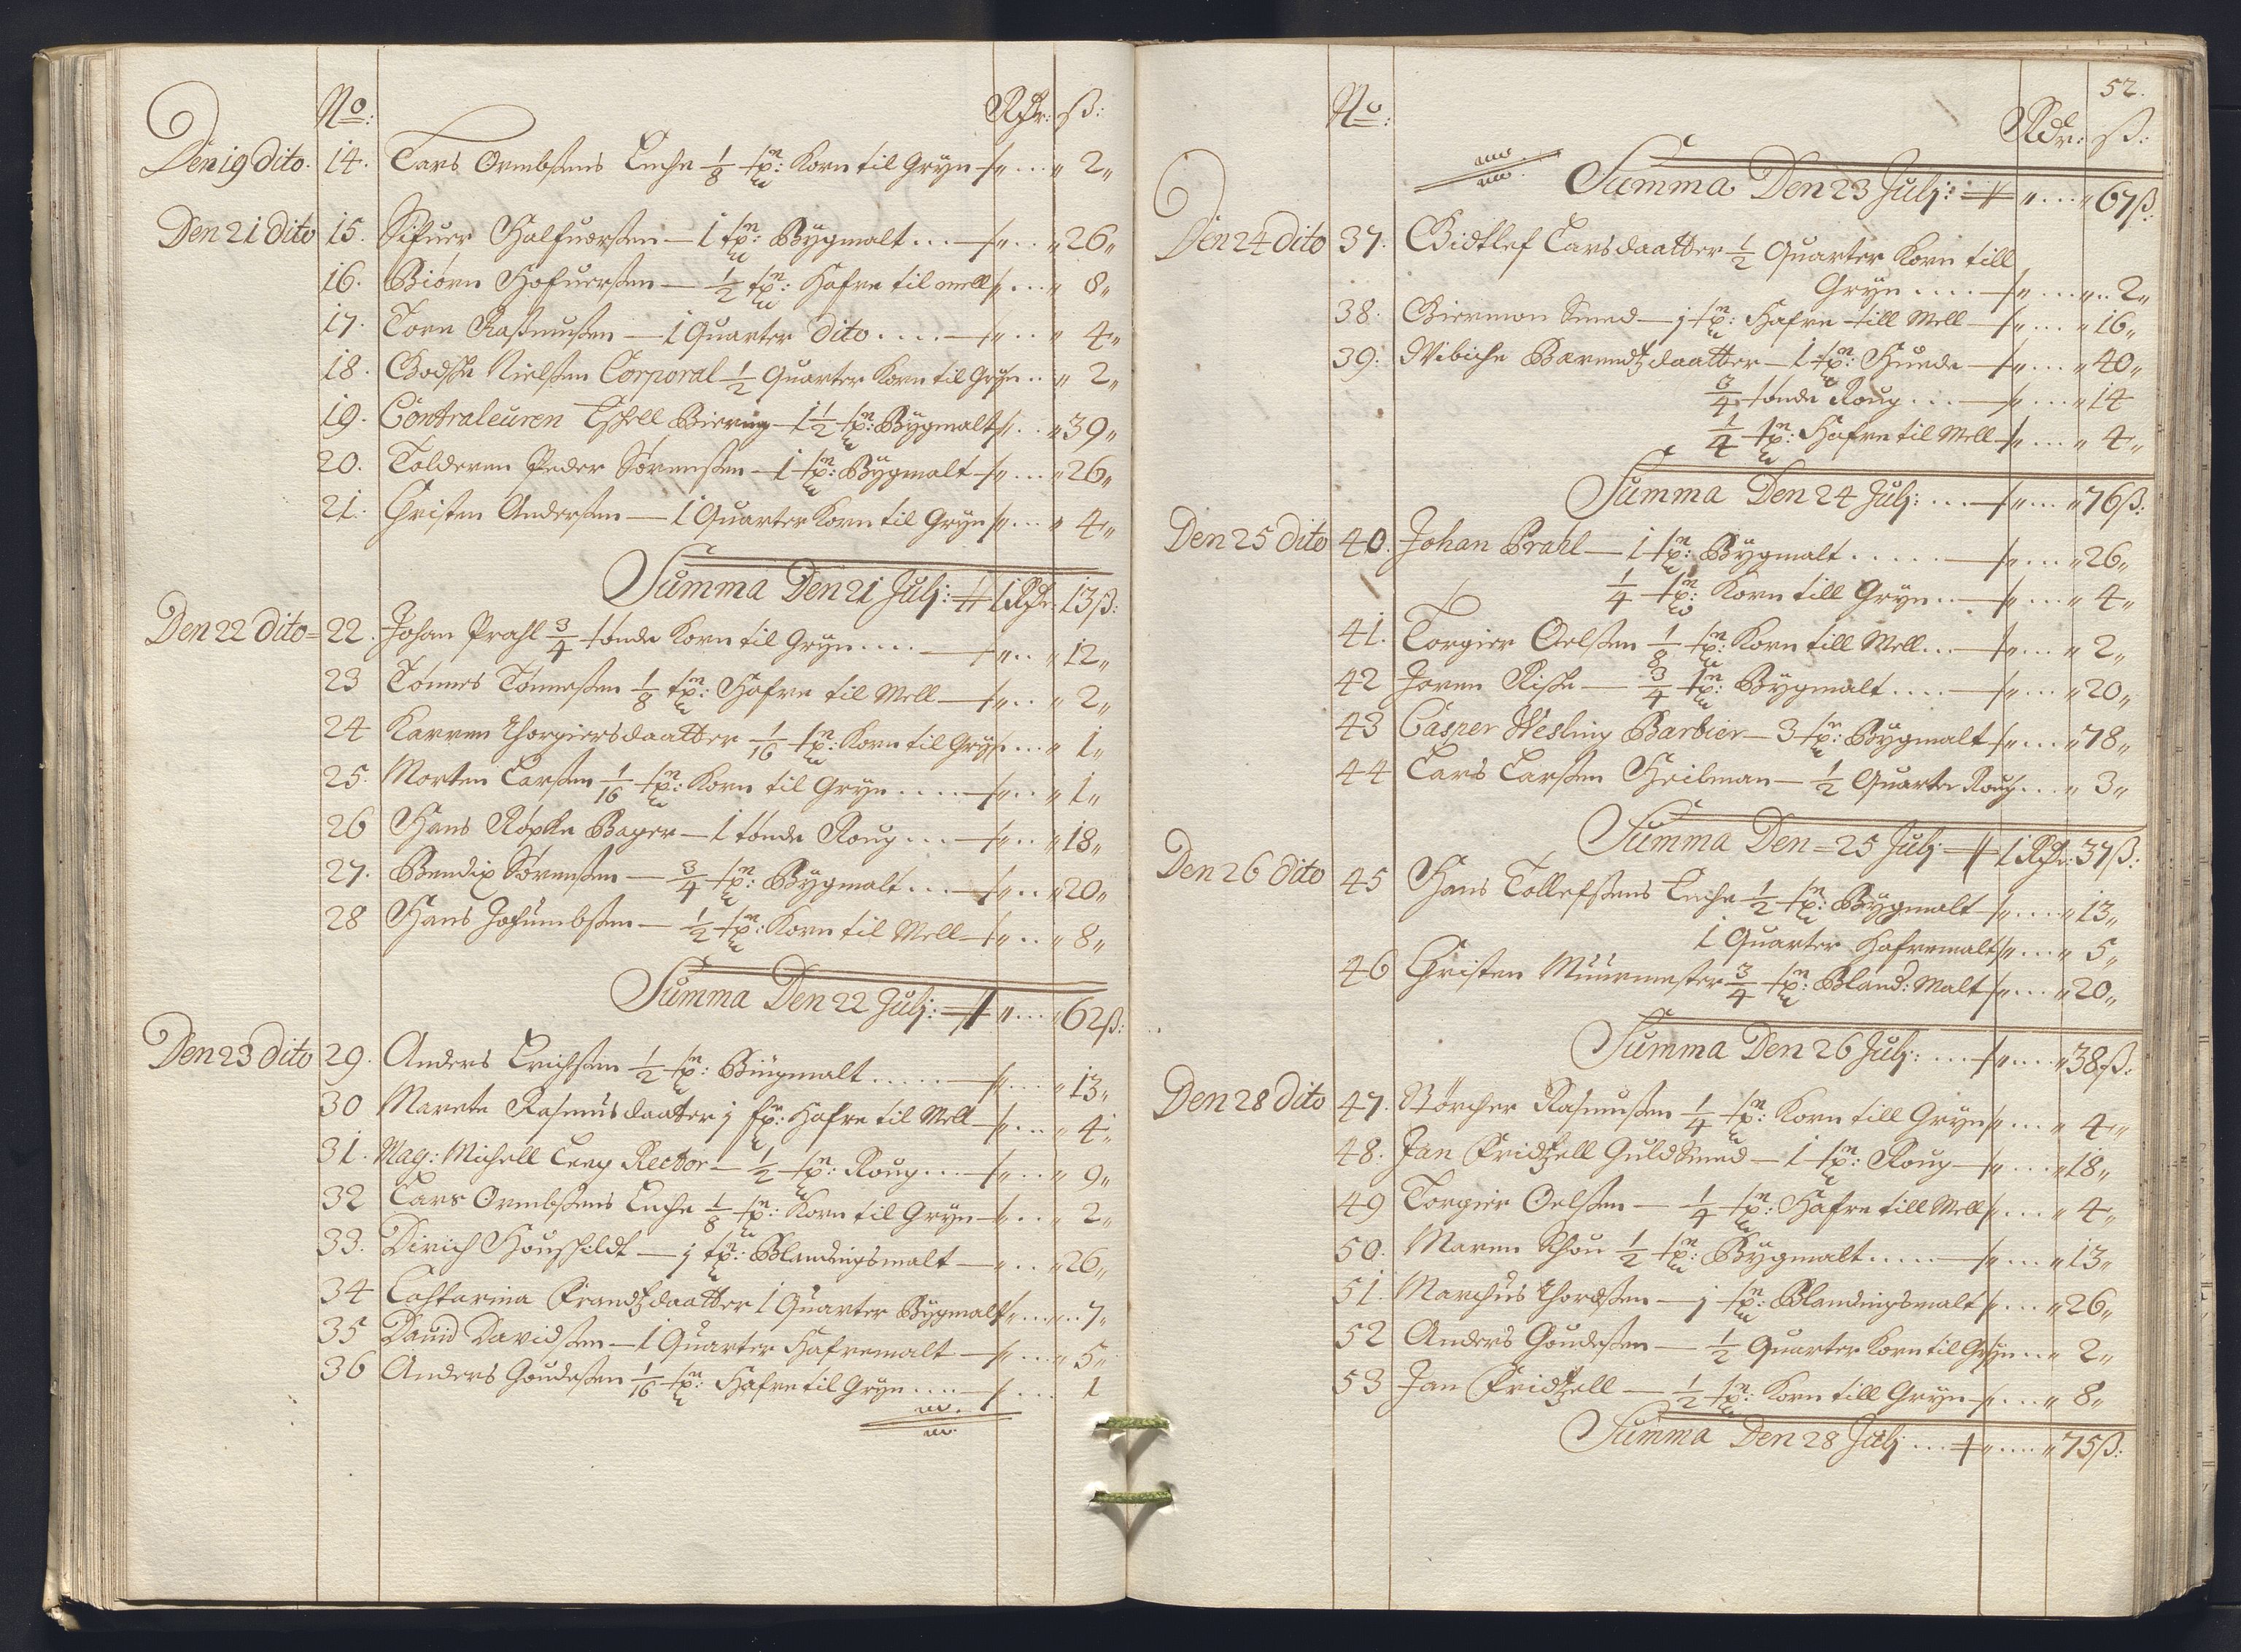 No: Rdr: ß:
Den 19 dito. 14. Lars Ormbsens Enche 1/8 tøn: Korn til Gryn " 2"
Den 21 dito 15. Sifuer Halfuorsen — 1 tøn: Bygmalt . . . " 26"
16. Biørn Hofuersen — 1/2 tøn: Hafre til mell " 8"
17. Tore Rasmusen — 1 Quarter dito . . . . " 4"
18. Nielsen Corporal 1/2 Quarter Korn til Gryn . . " 2"
19. Contraleuren Eskell Biering — 1 1/2 tøn: Bygmalt " 39"
20. Tolderen Peder Sørensen — 1 tøn: Bygmalt " 26"
21. Christen Andersen — 1 Quarter Korn til Gryn " 4"
Summa Den 21 Julj: 1 Rdr: 13 ß:
Den 22 dito 22. Johan Prahl 3/4 tønde Korn til Gryn . . . . " 12"
23 Tønnes Tønnesen 1/8 tøn: Hafre til Mell " 2"
24 Karren Thorgiersdaatter 1/16 tøn: Korn til Gryn . . . " 1"
25. Morten Larsen 1/16 tøn: Korn til Gryn . . . . " 1"
26 Hans Røpke Bager — 1 tønde Roug . . . " 18"
27. Bendix Sørensen — 3/4 tøn: Bygmalt . . . " 20"
28 Hans Jochumbsen — 1/2 tøn: Korn til Mell " 8"
Summa Den 22 Julj: " 62 ß:
Den 23 dito 29. Anders Erichsen 1/2 tøn: Bygmalt . . . . . " 13"
30 Marete Rasmusdaatter j Hafre til Mell " 4"
31. Mag: Michell Leeg Rector — 1/2 tøn: Roug . . . " 9"
32 Lars Ormbsens Enche 1/8 tøn: Korn til Gryn " 2"
33. Dirich Housfildt — j tøn: Blandingsmalt " 26"
34 Catharina Frandtzdaatter 1 Quarter Bygmalt . . 7"
35 Dauid Davidsen — 1 Quarter Hafremalt " 5"
36 Anders Goudesen 1/16 tøn: Hafre til Gryn . . . . 1
52.
No: Rdr: ß:
Summa Den 23 Julj: " 67 ß:
Den 24 dito 37. Larsdaatter 1/2 Quarter Korn till
Gryn . . . . " 2"
38. Biermon Smed — j tøn: Hafre till Mell " 16"
39. Wibiche Barendtzdaatter — 1 tøn: Huede " 40"
3/4 tønde Roug . . . " 14
1/4 tøn: Hafre til Mell " 4"
Summa Den 24 Julj: . . . " 76 ß:
Den 25 dito 40. Johan Prahl — 1 tøn: Bygmalt . . . . . " 26"
1/4 tøn: Korn till Gryn . . " 4"
41. Torgier Oelsen 1/8 tøn: Korn till Mell . . . " 2"
42 Joren Riske — 3/4 tøn: Bygmalt . . . . " 20"
43 Casper Wesling Barbier — 3 tøn: Bygmalt " 78"
44 Lars Larsen Heilman — 1/2 Quarter Roug . . . " 3"
Summa Den 25 Julj 1 Rdr: 37 ß:
Den 26 dito 45 Hans Tollefsens Enche 1/2 tøn: Bygmalt " 13"
1 Quarter Hafremalt " 5"
46 Christen Muurmester 3/4 tøn: Bland: Malt " 20"
Summa Den 26 Julj: . . . " 38 ß:
Den 28 dito 47. Børcher Rasmusen 1/4 tøn: Korn till Gryn " 4"
48. Jan Fridtzell Guldsmed — 1 tøn: Roug " 18"
49 Torgier Oelsen — 1/4 tøn: Hafre till Mell " 4"
50. Maren Schou 1/2 tøn: Bygmalt . . . . . " 13"
51. Marchus Thordsen — j tøn: Blandingsmalt " 26"
52 Anders Goudesen — 1/2 Quarter Korn til Gryn . . " 2"
53 Jan Fridtzell — 1/2 tøn: Korn till Gryn " 8"
Summa Den 28 Julj . . . " 75 ß: